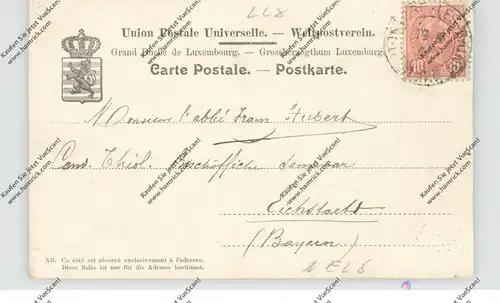 LL8
Union Postale Universelle. — Weltpostverein.
Grand Duché de Luxembourg. — Grossherzogthum Luxemburg.
Carte Postale. — Postkarte.
10
Monsieur l'abbé Frans Hubert
Cand. Théol. bischöfliche Seminar
Eichstaett
(Bayern)
NELS
NB. Ce côté est réservé exclusivement à l'adresse.
Diese Seite ist nur für die Adresse bestimmt.
Kaufen Sie jetzt mit VueScan!
www.hamrick.com